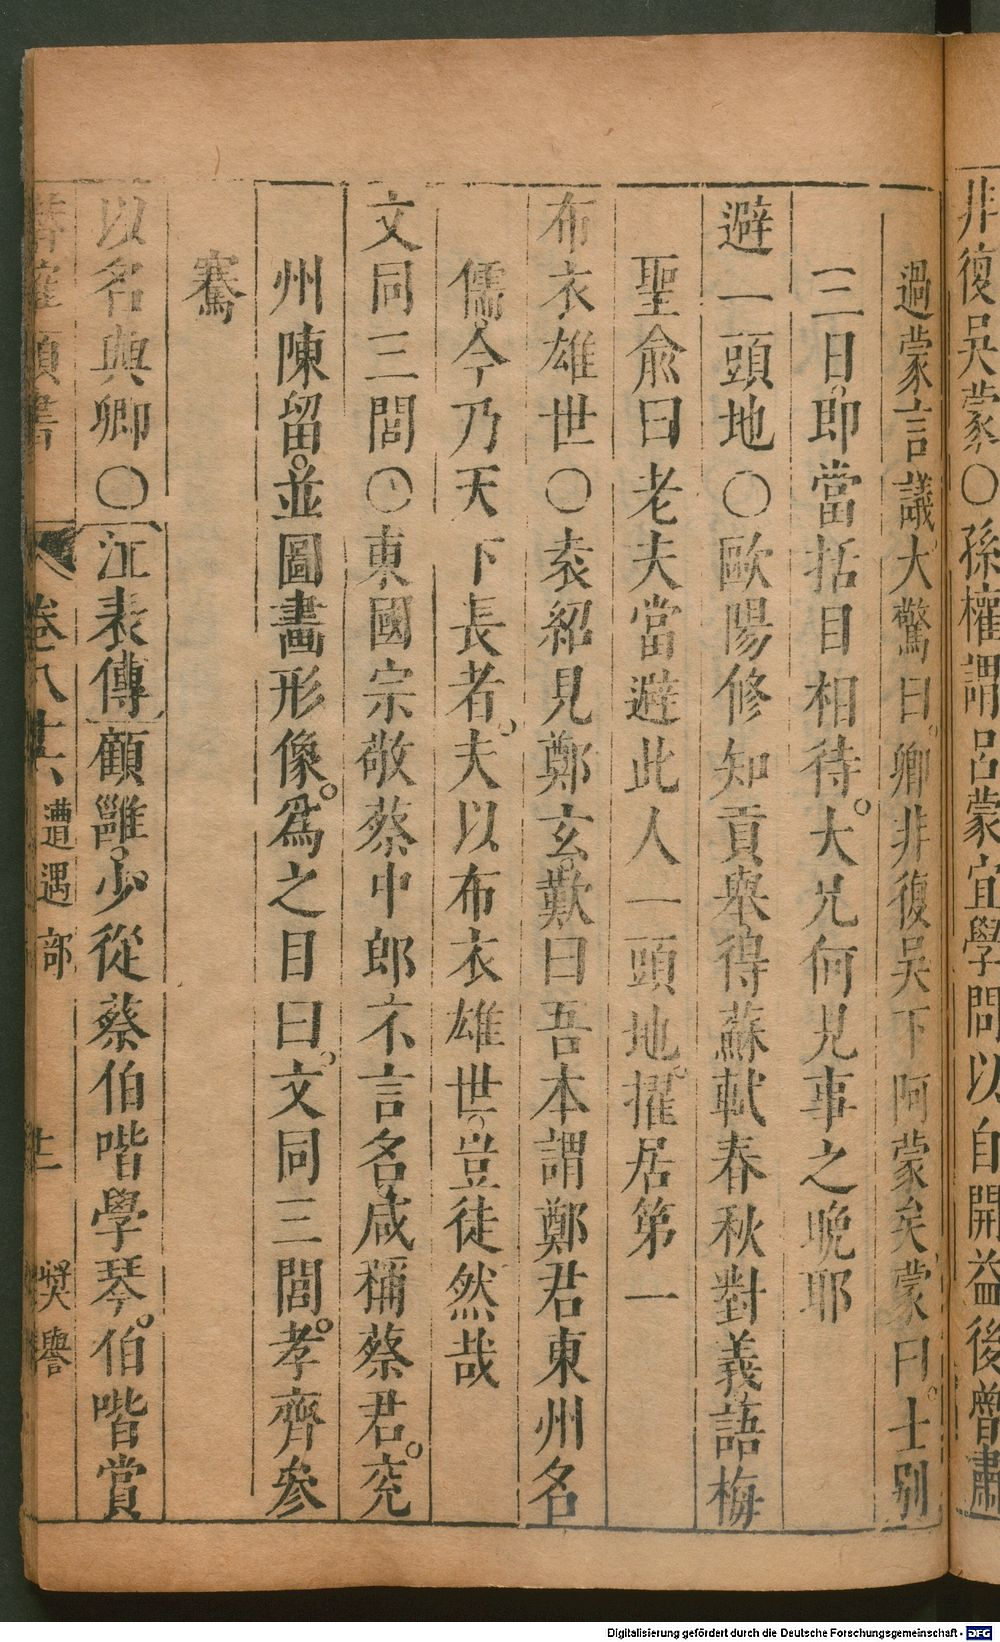 非復吳蒙○孫權謂呂蒙宜學問以自開益後魯肅
過蒙言議大驚曰卿非復吳下阿蒙矣蒙曰士別
三日卽當括目相待大兄何見事之晚耶
避一頭地○歐陽修知貢舉得蘇軾春秋對義語梅
聖兪曰老夫當避此人一頭地擢居第一
布衣雄世○袁紹見鄭玄歎曰吾本謂鄭君東州名
儒今乃天下長者夫以布衣雄世豈徒然哉
文同三閭○東國宗敬蔡中郎不言名咸稱蔡君兖
州陳留並圖畫形像爲之目曰文同三閭孝齊參
騫
以名與卿○江表傳顧雝少從蔡伯喈學琴伯喈賞
類書 卷八十六 遭遇部 十一 奬譽
Digitalisierung gefördert durch die Deutsche Forschungsgemeinschaft - DFG